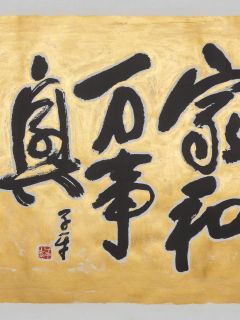 家和
万事
興
子平